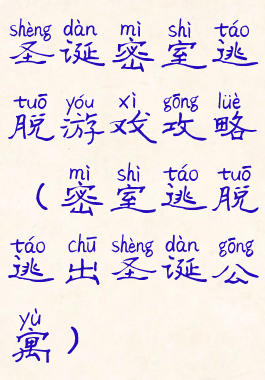 shèng dàn mì shì táo
圣诞密室逃
tuō yóu xì gōng lüè
脱游戏攻略
mì shì táo tuō
（密室逃脱
táo chū shèng dàn gōng
逃出圣诞公
yù
寓）